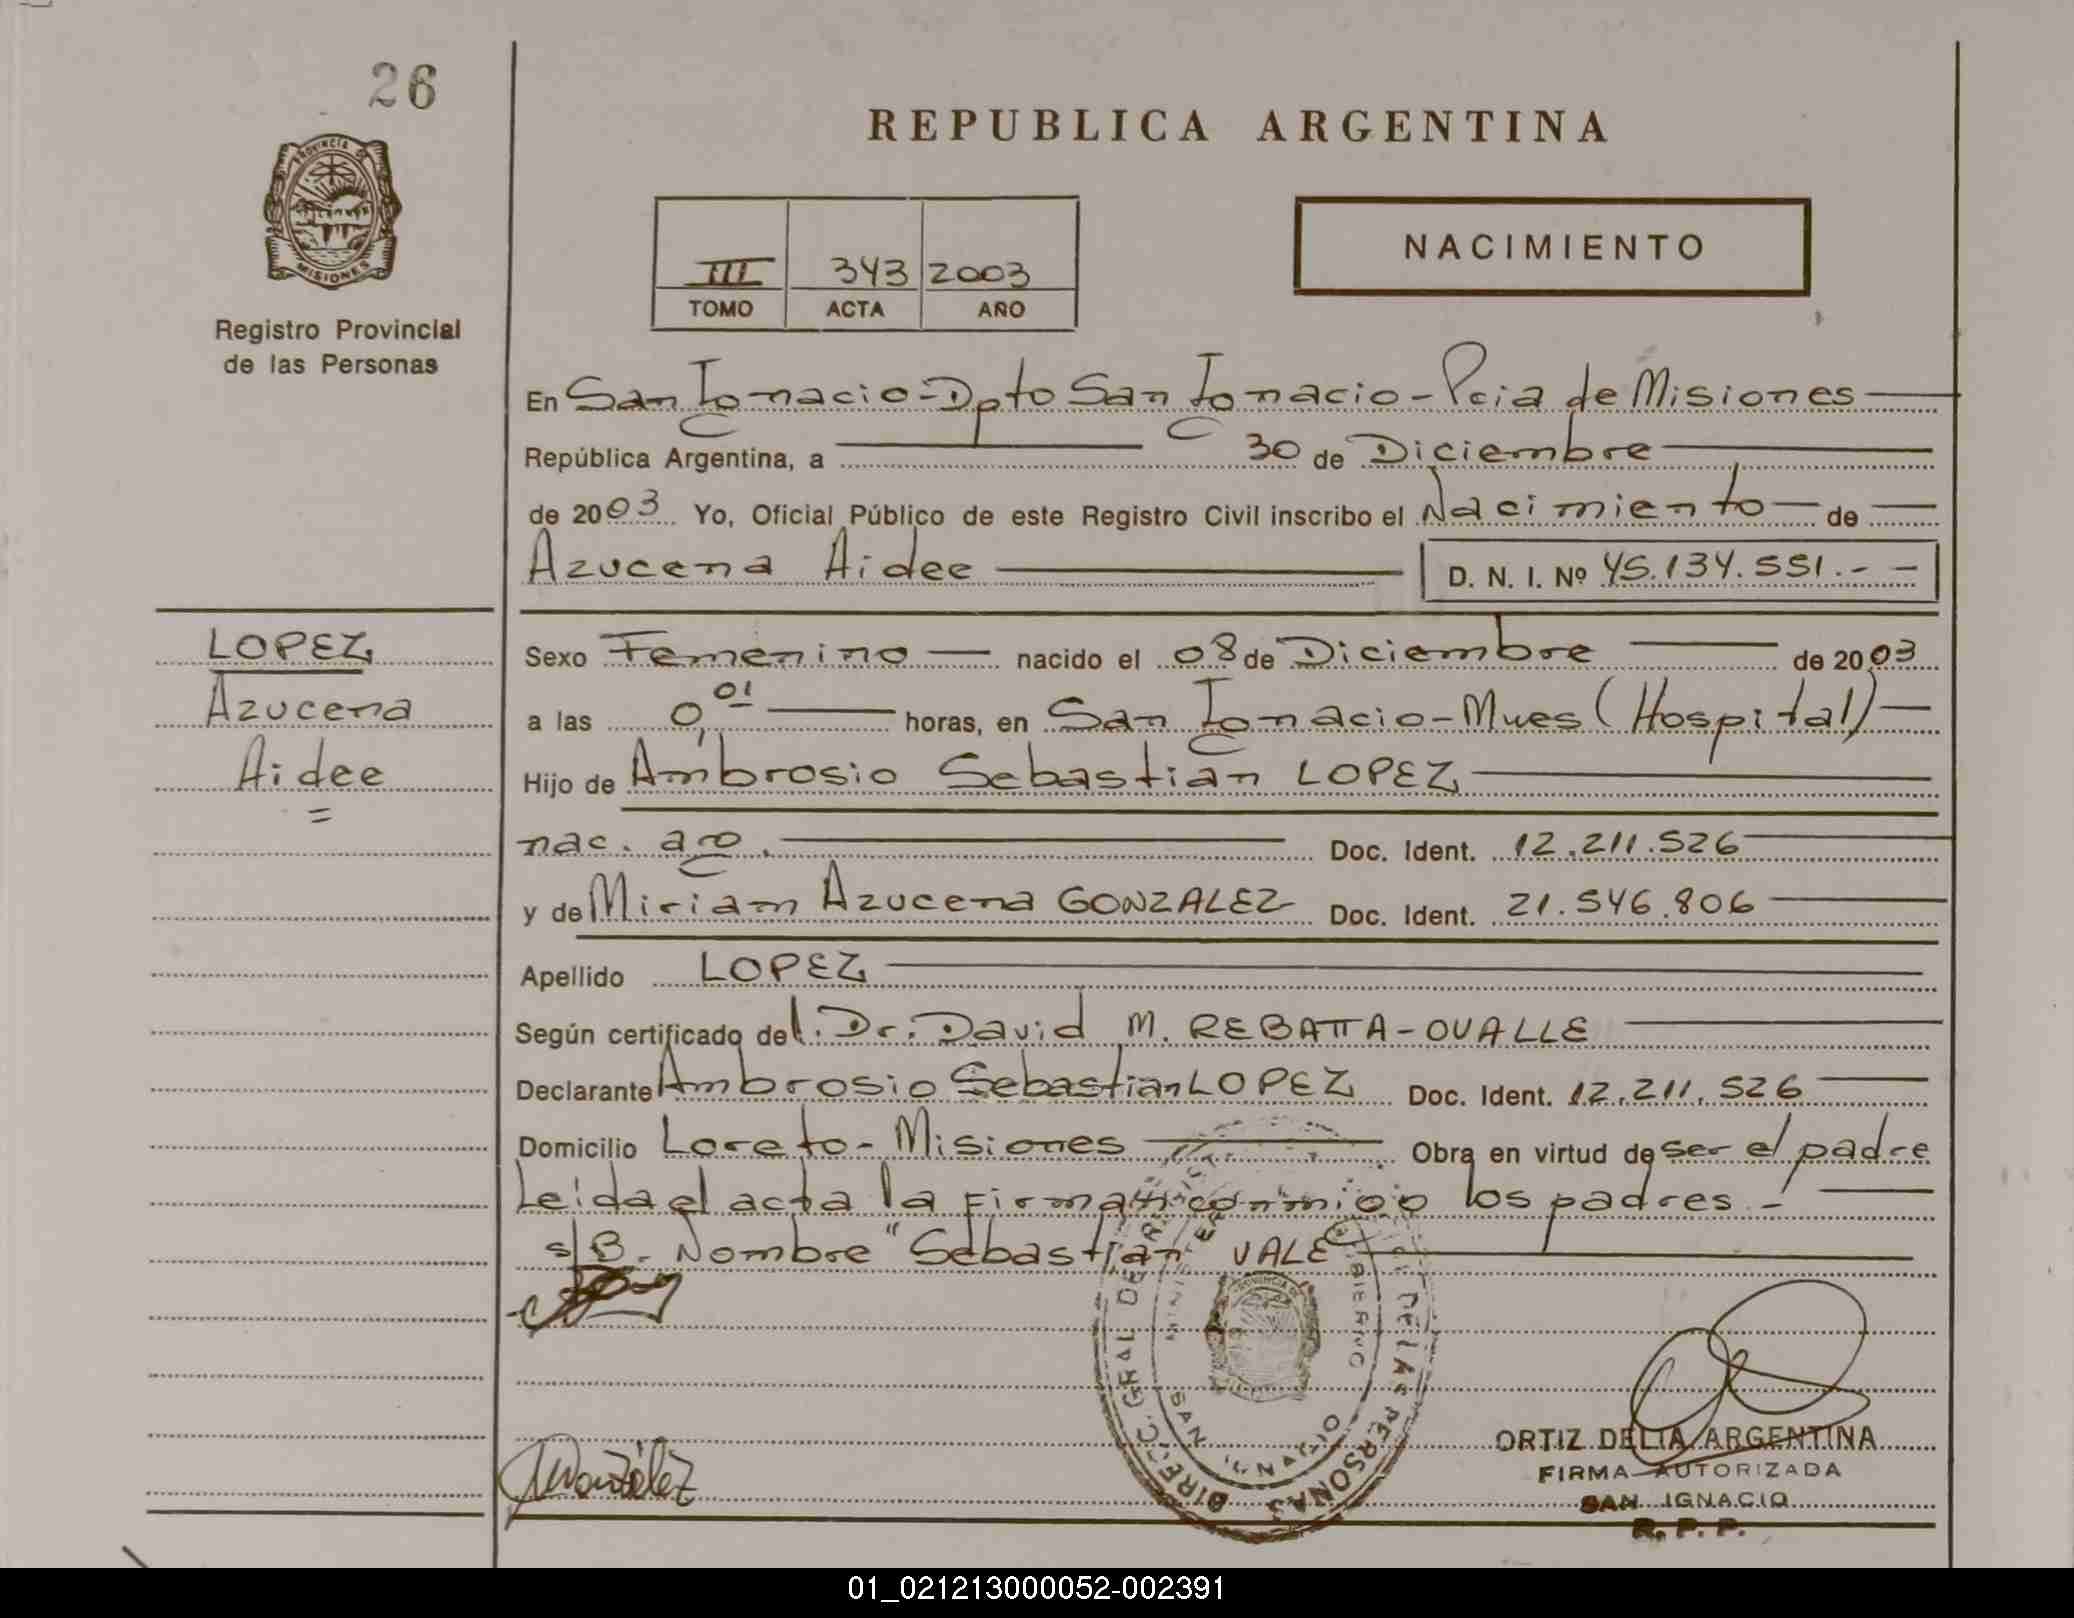 26
REPUBLICA ARGENTINA
PROVINCIA DE
MISIONES
Registro Provincial
de las Personas
III 343 2003
TOMO ACTA AÑO
NACIMIENTO
En San Ignacio-Dpto San Ignacio-Pcia de Misiones
República Argentina, a 30 de Diciembre
de 2003 Yo, Oficial Público de este Registro Civil inscribo el Nacimiento de
Azucena Aidee D. N. I. Nº 45.134.551.- -
LOPEZ
Azucena
Aidee
=
Sexo Femenino nacido el 08 de Diciembre de 2003
a las 0,01 horas, en San Ignacio-Mnes (Hospital)
Hijo de Ambrosio Sebastian LOPEZ
nac. arg. Doc. Ident. 12.211.526
y de Miriam Azucena GONZALEZ Doc. Ident. 21.546.806
Apellido LOPEZ
Según certificado del. Dr. David M. REBATTA-OVALLE
Declarante Ambrosio Sebastian LOPEZ Doc. Ident. 12.211.526
Domicilio Loreto-Misiones Obra en virtud de ser el padre
Leida el acta la firman conmigo los padres.-
s/B. Nombre "Sebastian" VALE
DIREC. GRAL DE DE LAS PERSONAS
SAN IGNACIO
González
ORTIZ DELIA ARGENTINA
FIRMA AUTORIZADA
SAN IGNACIO
R. P. P.
01_021213000052-002391